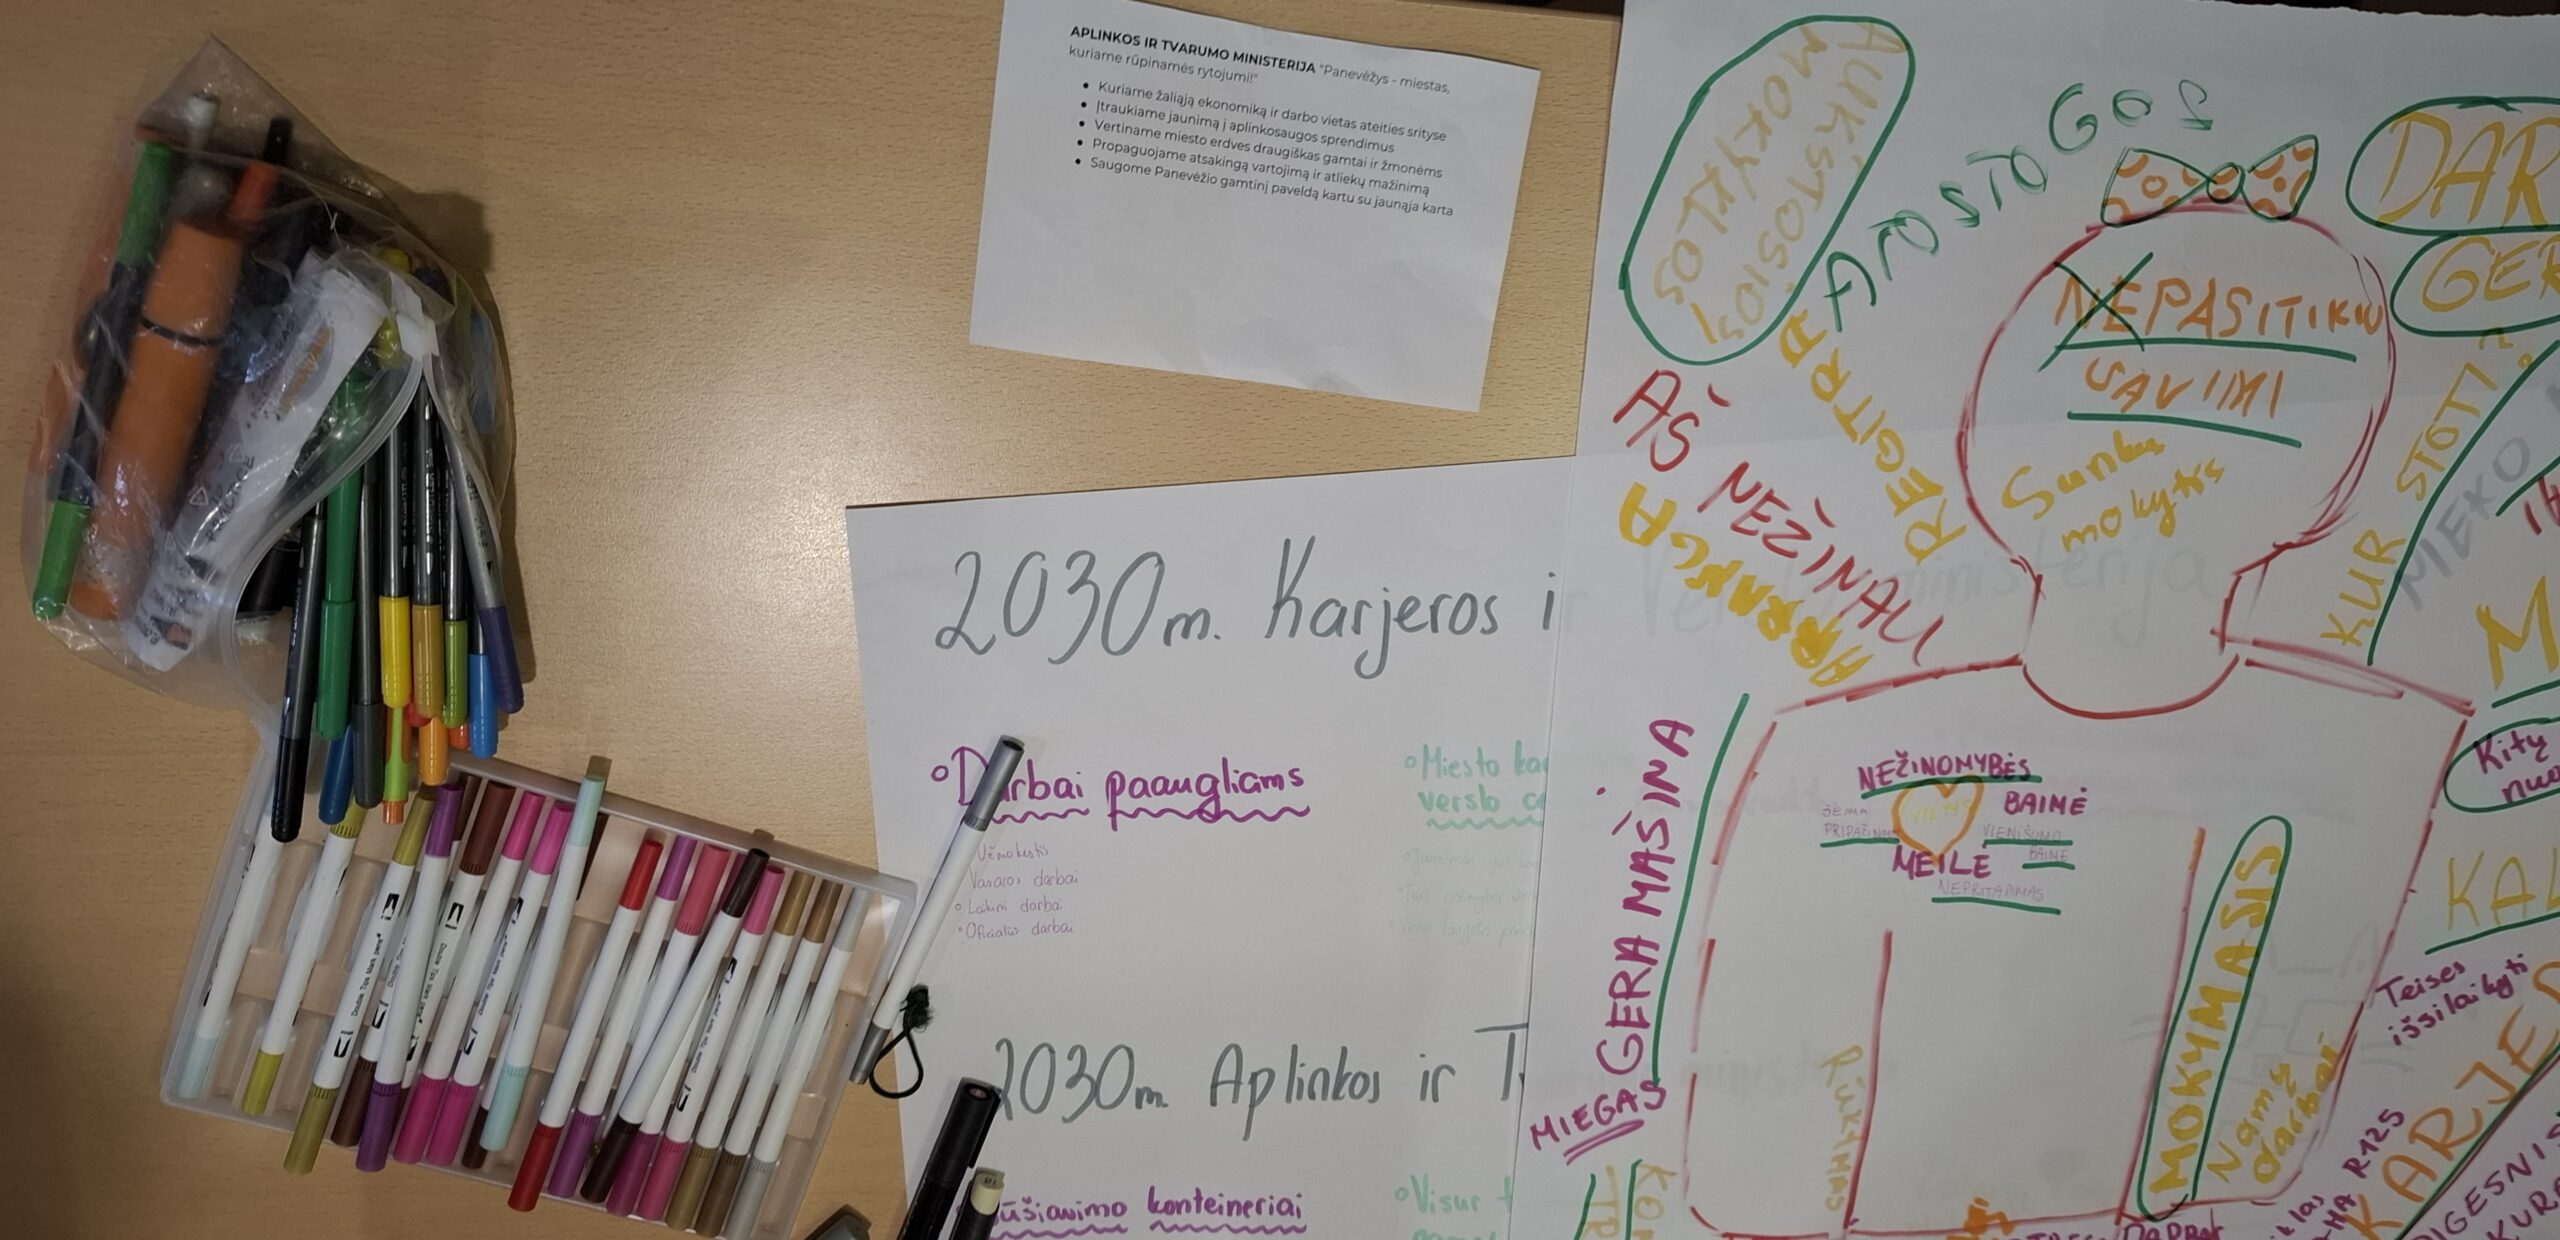 APLINKOS IR TVARUMO MINISTERIJA "Panevėžys - miestas,
kuriame rūpinamės rytojumi!"
Kuriame žaliąją ekonomiką ir darbo vietas ateities srityse
Įtraukiame jaunimą į aplinkosaugos sprendimus
Vertiname miesto erdves draugiškas gamtai ir žmonėms
Propaguojame atsakingą vartojimą ir atliekų mažinimą
Saugome Panevėžio gamtinį paveldą kartu su jaunąja karta
2030m. Karjeros i
Darbai paaugliams
Užmokestis
Vasaros darbai
Laikini darbai
Oficialūs darbai
Miesto
verslo
2030m. Aplinkos ir T
konteineriai
Visur
AUKŠTOSIOS
MOKYKLOS
ATOSTOGOS
REGITRA
AŠ NEŽINAU
APRANGA
GERA MAŠINA
MIEGAS
NEPASITIKIU
SAVIMI
Sunku
mokytis
NEŽINOMYBĖS
BAIMĖ
VILTYS
ŠEIMA
VIENIŠUMO
BAIMĖ
MEILĖ
NEPRITAPIMAS
RŪKYMAS
MOKYMASIS
Namų
darbai
DAR
GER
KUR STOTI?
MIEKO
M
Kitų
nuo
KAL
Teisės
išsilaikyti
R125
KARJE